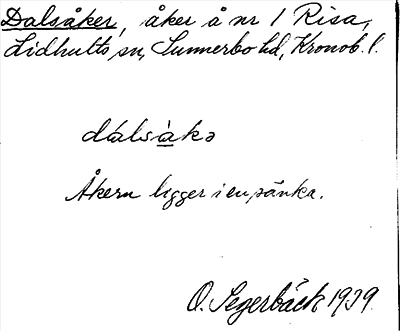 Dalsåker, åker å nr 1 Risa,
Lidhults sn, Sunnerbo hd, Kronob. l.
dálsàkə
Åkern ligger i en sänka.
O. Segerbäck 1939.